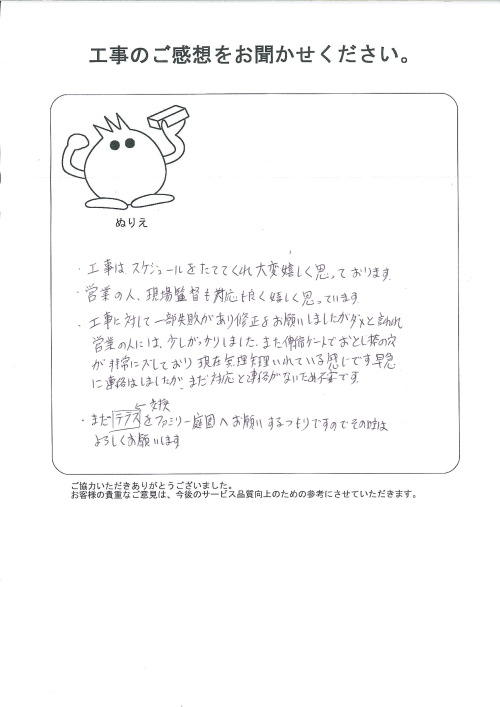 工事のご感想をお聞かせください。
ぬりえ
・工事はスケジュールをたててくれ大変嬉しく思っております。
・営業の人、現場監督も対応も良く嬉しく思っています。
・工事に対して一部失敗があり修正をお願いしましたがダメと言われ
営業の人には、少しがっかりしました。また伸縮ゲートでおとし棒の穴
が非常にズレており現在無理矢理いれている感じです。早急
に連絡はしましたが、まだ対応と連絡がないため不安です。
←交換
・まだテラスをファミリー庭園へお願いするつもりですのでその時は
よろしくお願いします
ご協力いただきありがとうございました。
お客様の貴重なご意見は、今後のサービス品質向上のための参考にさせていただきます。